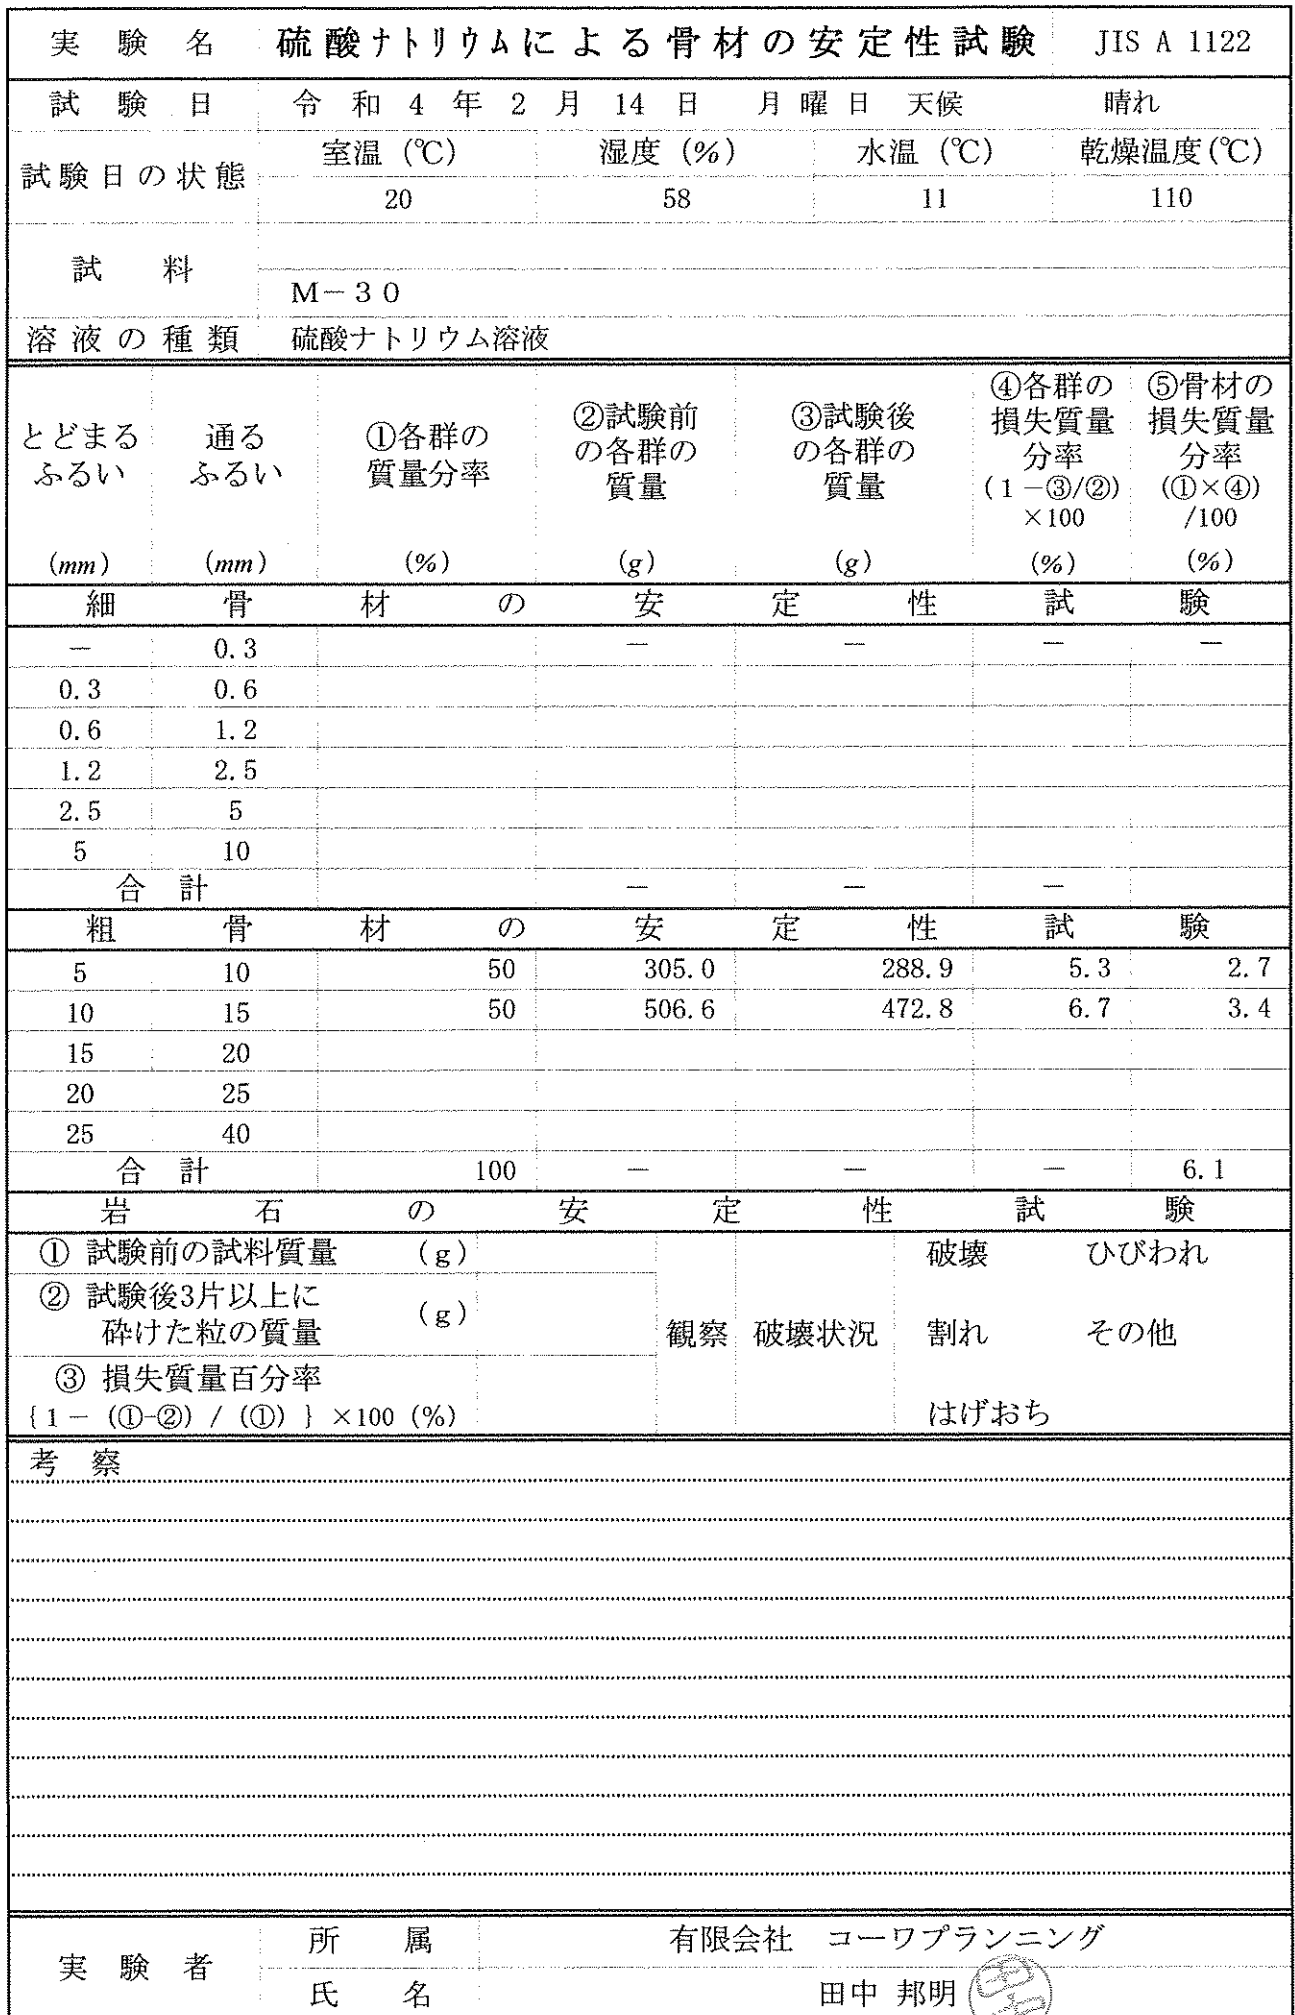 実験名 硫酸ナトリウムによる骨材の安定性試験 JIS A 1122
試験日 令和4年2月14日 月曜日 天候 晴れ
試験日の状態 室温(℃) 湿度(%) 水温(℃) 乾燥温度(℃)
20 58 11 110
試料
M-30
溶液の種類 硫酸ナトリウム溶液
とどまる
ふるい
(mm)
通る
ふるい
(mm)
①各群の
質量分率
(%)
②試験前
の各群の
質量
(g)
③試験後
の各群の
質量
(g)
④各群の
損失質量
分率
(1-③/②)
×100
(%)
⑤骨材の
損失質量
分率
(①×④)
/100
(%)
細骨材の安定性試験
― 0.3 ― ― ― ―
0.3 0.6
0.6 1.2
1.2 2.5
2.5 5
5 10
合計 ― ― ―
粗骨材の安定性試験
5 10 50 305.0 288.9 5.3 2.7
10 15 50 506.6 472.8 6.7 3.4
15 20
20 25
25 40
合計 100 ― ― ― 6.1
岩石の安定性試験
① 試験前の試料質量 (g)
② 試験後3片以上に
砕けた粒の質量 (g)
③ 損失質量百分率
{1-(①-②)/(①)}×100(%)
観察 破壊状況
破壊 ひびわれ
割れ その他
はげおち
考察
実験者 所属 有限会社 コーワプランニング
氏名 田中 邦明